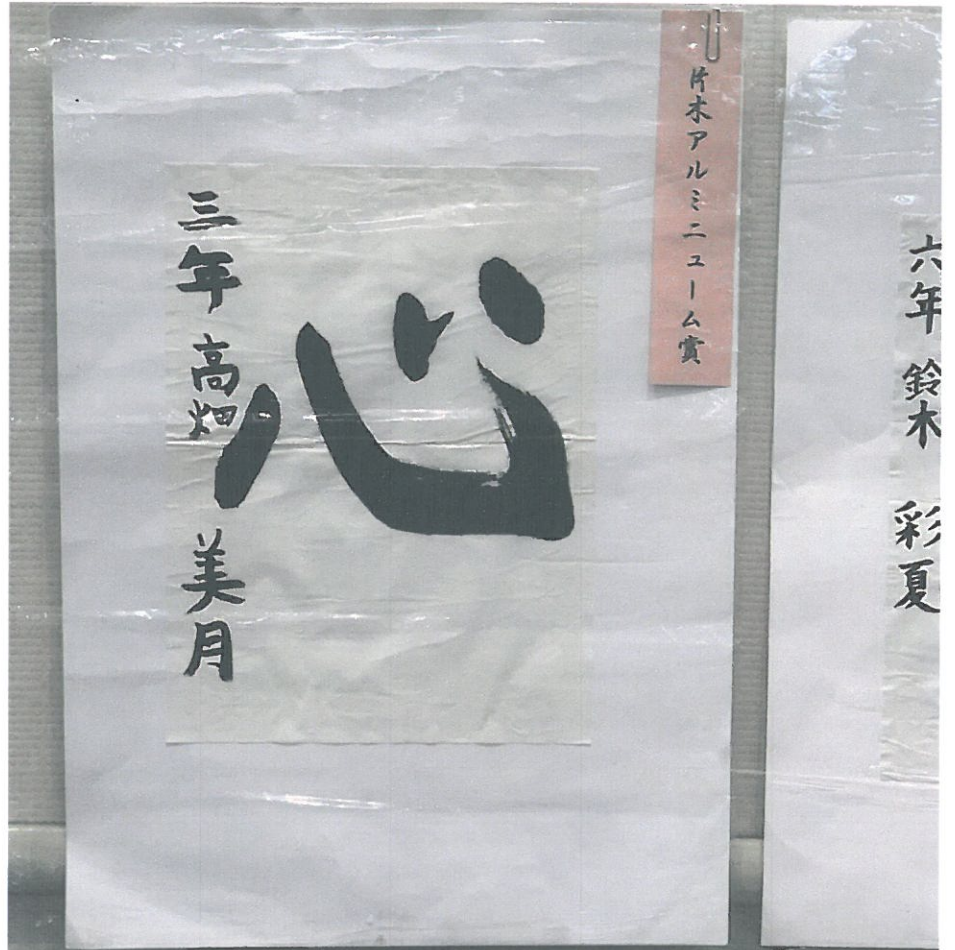 片木アルミニューム賞
心
三年 高畑 美月
六年 鈴木 彩夏